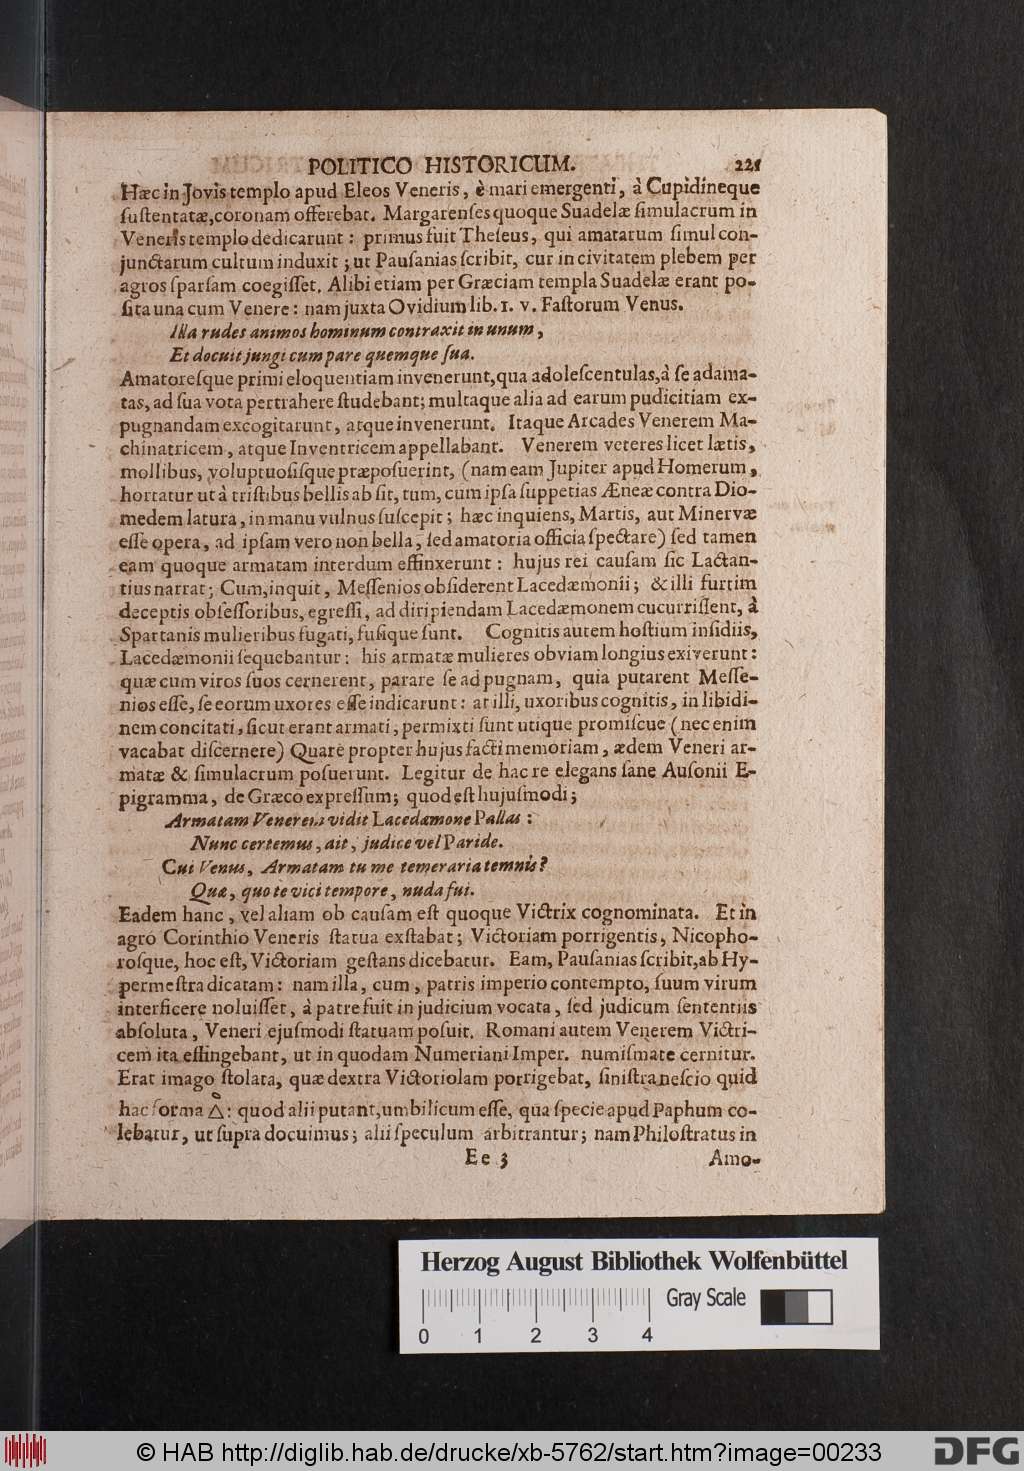 POLITICO HISTORICUM. 221
Hæc in Jovis templo apud Eleos Veneris, è mari emergenti, à Cupidineque
ſuſtentatæ, coronam offerebat. Margarenſes quoque Suadelæ ſimulacrum in
Veneris templo dedicarunt: primus fuit Theſeus, qui amatarum ſimul con-
junctarum cultum induxit; ut Pauſanias ſcribit, cur in civitatem plebem per
agros ſparſam coegiſſet. Alibi etiam per Græciam templa Suadelæ erant po-
ſita una cum Venere: nam juxta Ovidium lib. 1. v. Faſtorum Venus.
Illa rudes animos hominum contraxit in unum,
Et docuit jungi cum pare quemque ſua.
Amatoreſque primi eloquentiam invenerunt, qua adoleſcentulas, à ſe adama-
tas, ad ſua vota pertrahere ſtudebant; multaque alia ad earum pudicitiam ex-
pugnandam excogitarunt, atque invenerunt. Itaque Arcades Venerem Ma-
chinatricem, atque Inventricem appellabant. Venerem veteres licet lætis,
mollibus, voluptuoſiſque præpoſuerint, (nam eam Jupiter apud Homerum,
hortatur ut à triſtibus bellis abſit, tum, cum ipſa ſuppetias Æneæ contra Dio-
medem latura, in manu vulnus ſuſcepit; hæc inquiens, Martis, aut Minervæ
eſſe opera, ad ipſam vero non bella, ſed amatoria officia ſpectare) ſed tamen
eam quoque armatam interdum effinxerunt: hujus rei cauſam ſic Lactan-
tius narrat; Cum, inquit, Meſſenios obſiderent Lacedæmonii; & illi furtim
deceptis obſeſſoribus, egreſſi, ad diripiendam Lacedæmonem cucurriſſent, à
Spartanis mulieribus fugati, fuſique ſunt. Cognitis autem hoſtium inſidiis,
Lacedæmonii ſequebantur: his armatæ mulieres obviam longius exiverunt:
quæ cum viros ſuos cernerent, parare ſe ad pugnam, quia putarent Meſſe-
nios eſſe, ſe eorum uxores eſſe indicarunt: at illi, uxoribus cognitis, in libidi-
nem concitati, ſicut erant armati, permixti ſunt utique promiſcue (nec enim
vacabat diſcernere) Quare propter hujus facti memoriam, ædem Veneri ar-
matæ & ſimulacrum poſuerunt. Legitur de hac re elegans ſane Auſonii E-
pigramma, de Græco expreſſum; quod eſt hujuſmodi;
Armatam Venerem vidit Lacedæmone Pallas:
Nunc certemus, ait, judice vel Paride.
Cui Venus, Armatam tu me temeraria temnis?
Quæ, quo te vici tempore, nuda fui.
Eadem hanc, vel aliam ob cauſam eſt quoque Victrix cognominata. Et in
agro Corinthio Veneris ſtatua exſtabat; Victoriam porrigentis, Nicopho-
roſque, hoc eſt, Victoriam geſtans dicebatur. Eam, Pauſanias ſcribit, ab Hy-
permeſtra dicatam: nam illa, cum, patris imperio contempto, ſuum virum
interficere noluiſſet, à patre fuit in judicium vocata, ſed judicum ſententiis
abſoluta, Veneri ejuſmodi ſtatuam poſuit. Romani autem Venerem Victri-
cem ita effingebant, ut in quodam Numeriani Imper. numiſmate cernitur.
Erat imago ſtolata, quæ dextra Victoriolam porrigebat, ſiniſtra neſcio quid
hac forma △: quod alii putant, umbilicum eſſe, qua ſpecie apud Paphum co-
lebatur, ut ſupra docuimus; alii ſpeculum arbitrantur; nam Philoſtratus in
Ee 3 Amo-
Herzog August Bibliothek Wolfenbüttel
Gray Scale
0 1 2 3 4
© HAB http://diglib.hab.de/drucke/xb-5762/start.htm?image=00233
DFG